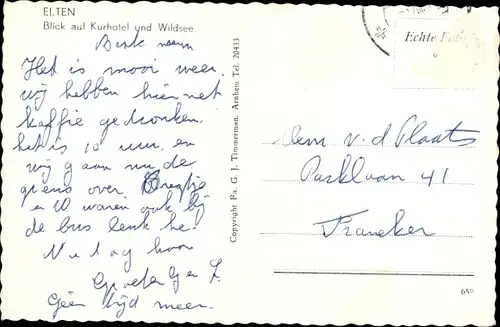 ELTEN
Blick auf Kurhotel und Wildsee
Het is mooi weer.
wij hebben hier net
koffie gedronken.
het is 10 uur en
wij gaan nu de
grens over
en 10 waren ook bij
de bus leuk he.
Nu dag hoor
Groeten G en L.
Geen tijd meer.
Copyright Fa. G. J. Timmerman, Arnhem Tel. 20433
Echte Fo
v.d Plaats
Parklaan 41
Franeker
659